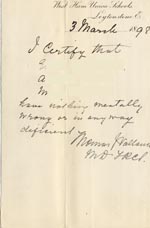 West Ham Union Schools
Leytonstone E.
3 March 1898
I Certify that
G
a
M
have nothing mentally
wrong or in any way
different
Thomas J
MD FRCS.